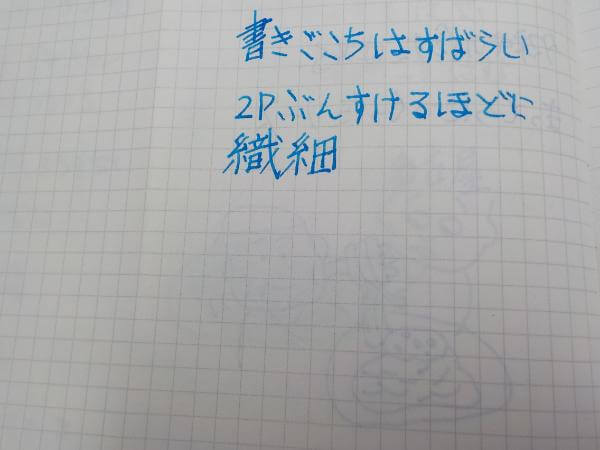 書きごこちはすばらい
2P.ぶんすけるほどに
織細